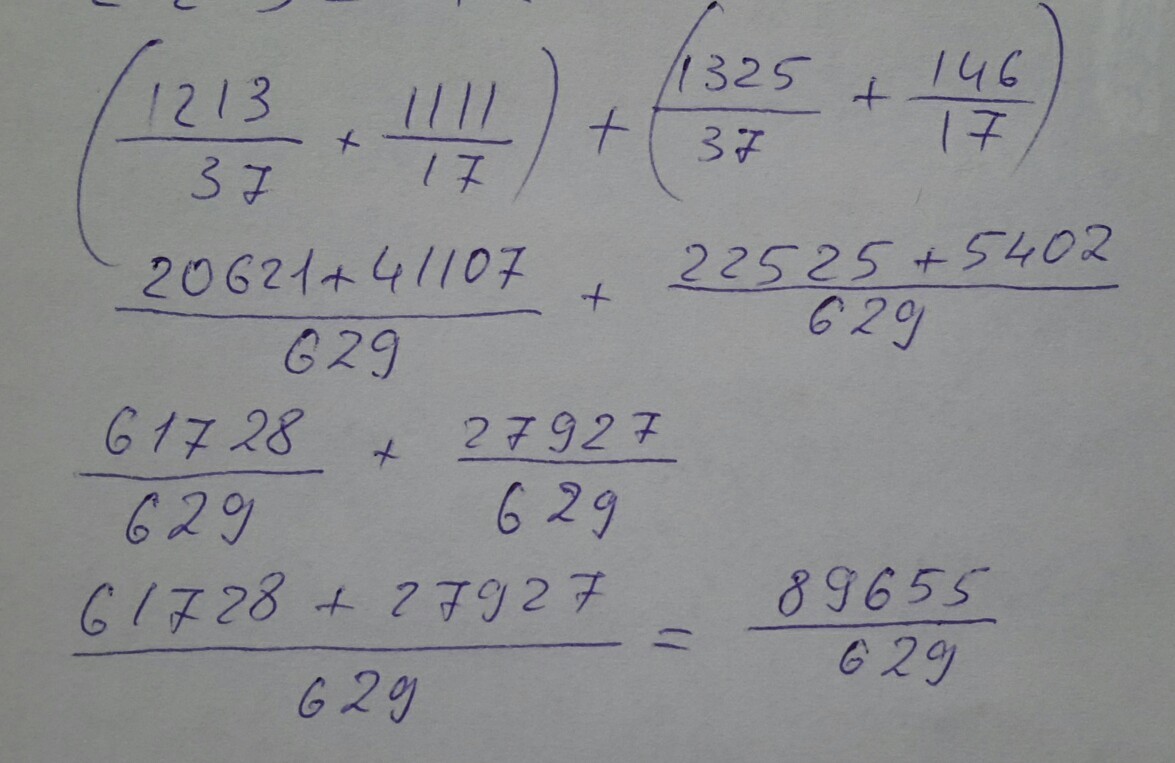 (1213/37 + 1111/17) + (1325/37 + 146/17)
20621+41107/629 + 22525+5402/629
61728/629 + 27927/629
61728 + 27927/629 = 89655/629